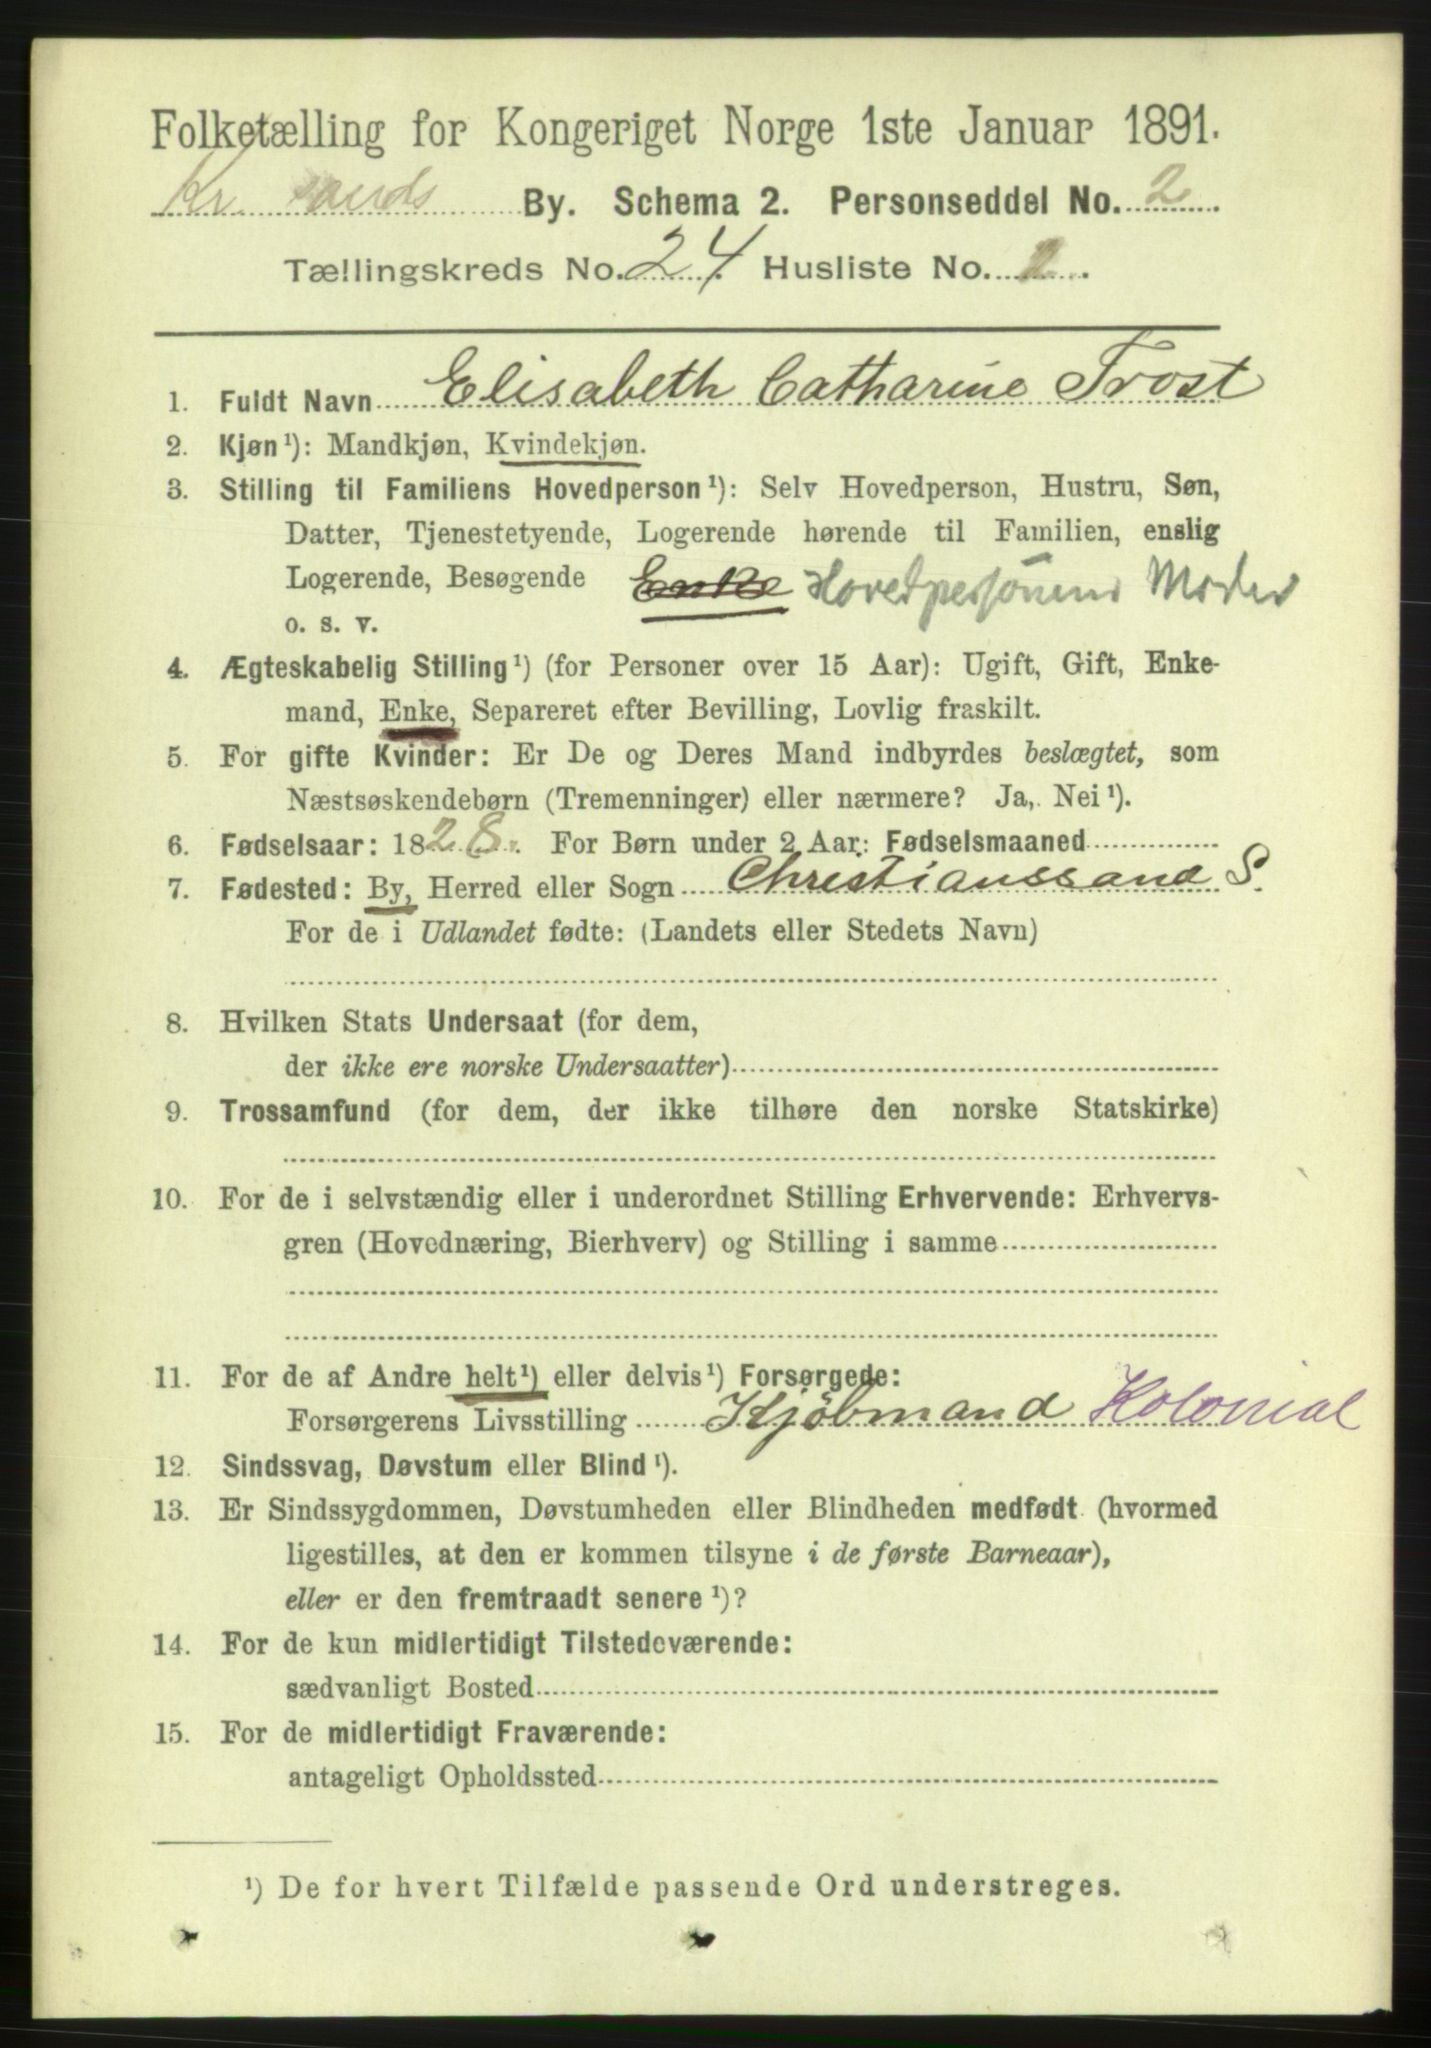 Folketælling for Kongeriget Norge 1ste Januar 1891.
Kr. sands By. Schema 2. Personseddel No. 2
Tællingskreds No. 24 Husliste No.
1. Fuldt Navn Elisabeth Catharine Trost
2. Kjøn¹): Mandkjøn, Kvindekjøn.
3. Stilling til Familiens Hovedperson¹): Selv Hovedperson, Hustru, Søn,
Datter, Tjenestetyende, Logerende hørende til Familien, enslig
Logerende, Besøgende Enke Hovedpersonens Moder
o. s. v.
4. Ægteskabelig Stilling¹) (for Personer over 15 Aar): Ugift, Gift, Enke-
mand, Enke, Separeret efter Bevilling, Lovlig fraskilt.
5. For gifte Kvinder: Er De og Deres Mand indbyrdes beslægtet, som
Næstsøskendebørn (Tremenninger) eller nærmere? Ja, Nei¹).
6. Fødselsaar: 1828. For Børn under 2 Aar: Fødselsmaaned
7. Fødested: By, Herred eller Sogn Christianssand S.
For de i Udlandet fødte: (Landets eller Stedets Navn)
8. Hvilken Stats Undersaat (for dem,
der ikke ere norske Undersaatter)
9. Trossamfund (for dem, der ikke tilhøre den norske Statskirke)
10. For de i selvstændig eller i underordnet Stilling Erhvervende: Erhvervs-
gren (Hovednæring, Bierhverv) og Stilling i samme
11. For de af Andre helt¹) eller delvis¹) Forsørgede:
Forsørgerens Livsstilling Kjöbmand Kolonial
12. Sindssvag, Døvstum eller Blind¹).
13. Er Sindssygdommen, Døvstumheden eller Blindheden medfødt (hvormed
ligestilles, at den er kommen tilsyne i de første Barneaar),
eller er den fremtraadt senere¹)?
14. For de kun midlertidigt Tilstedeværende:
sædvanligt Bosted
15. For de midlertidigt Fraværende:
antageligt Opholdssted
¹) De for hvert Tilfælde passende Ord understreges.